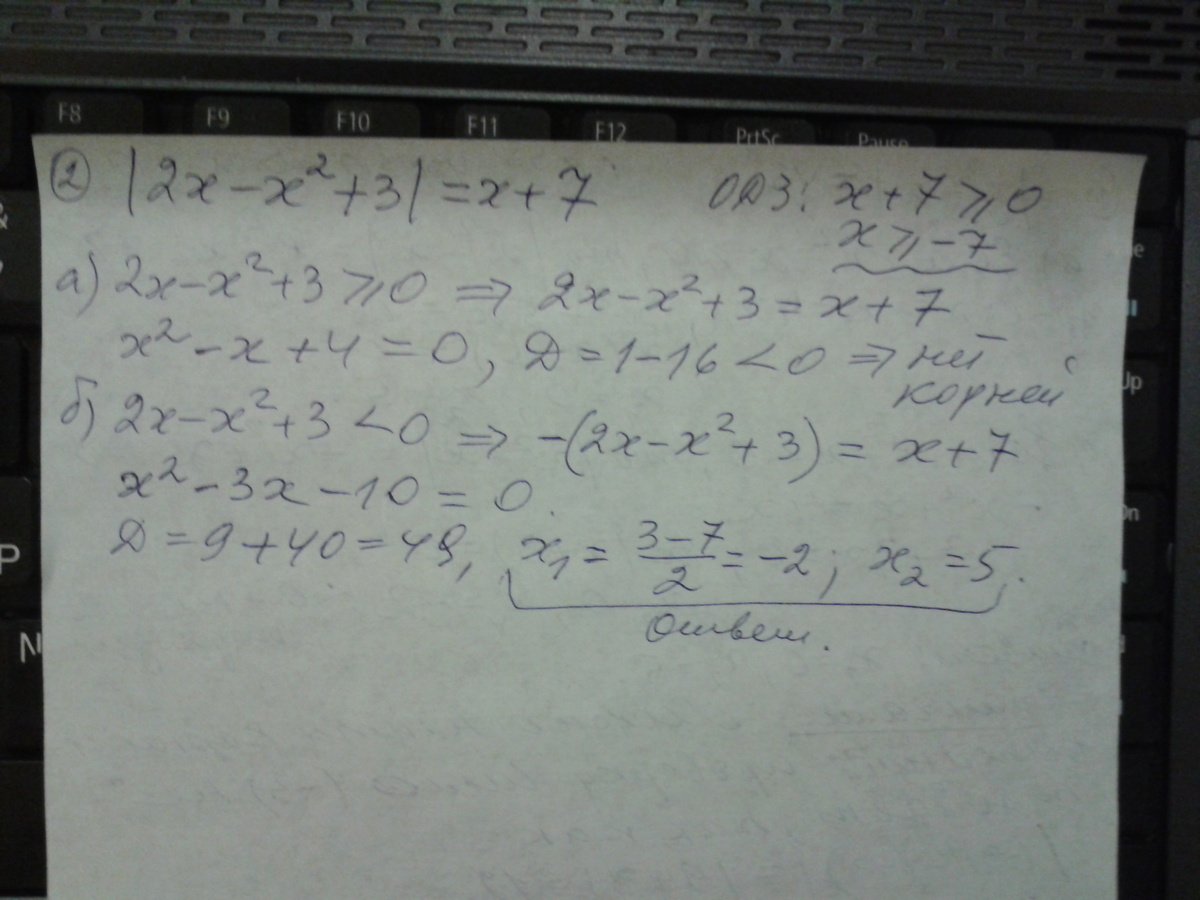 F8 F9 F10 F11 F12 PrtSc Pause
② |2x-x²+3|=x+7 ОДЗ: x+7⩾0
x⩾-7
а) 2x-x²+3⩾0 ⇒ 2x-x²+3=x+7
x²-x+4=0, Д=1-16<0 ⇒ нет
корней
б) 2x-x²+3<0 ⇒ -(2x-x²+3)=x+7
x²-3x-10=0.
Д=9+40=49, x₁=(3-7)/2=-2; x₂=5.
Ответ.
&
P
N
Up